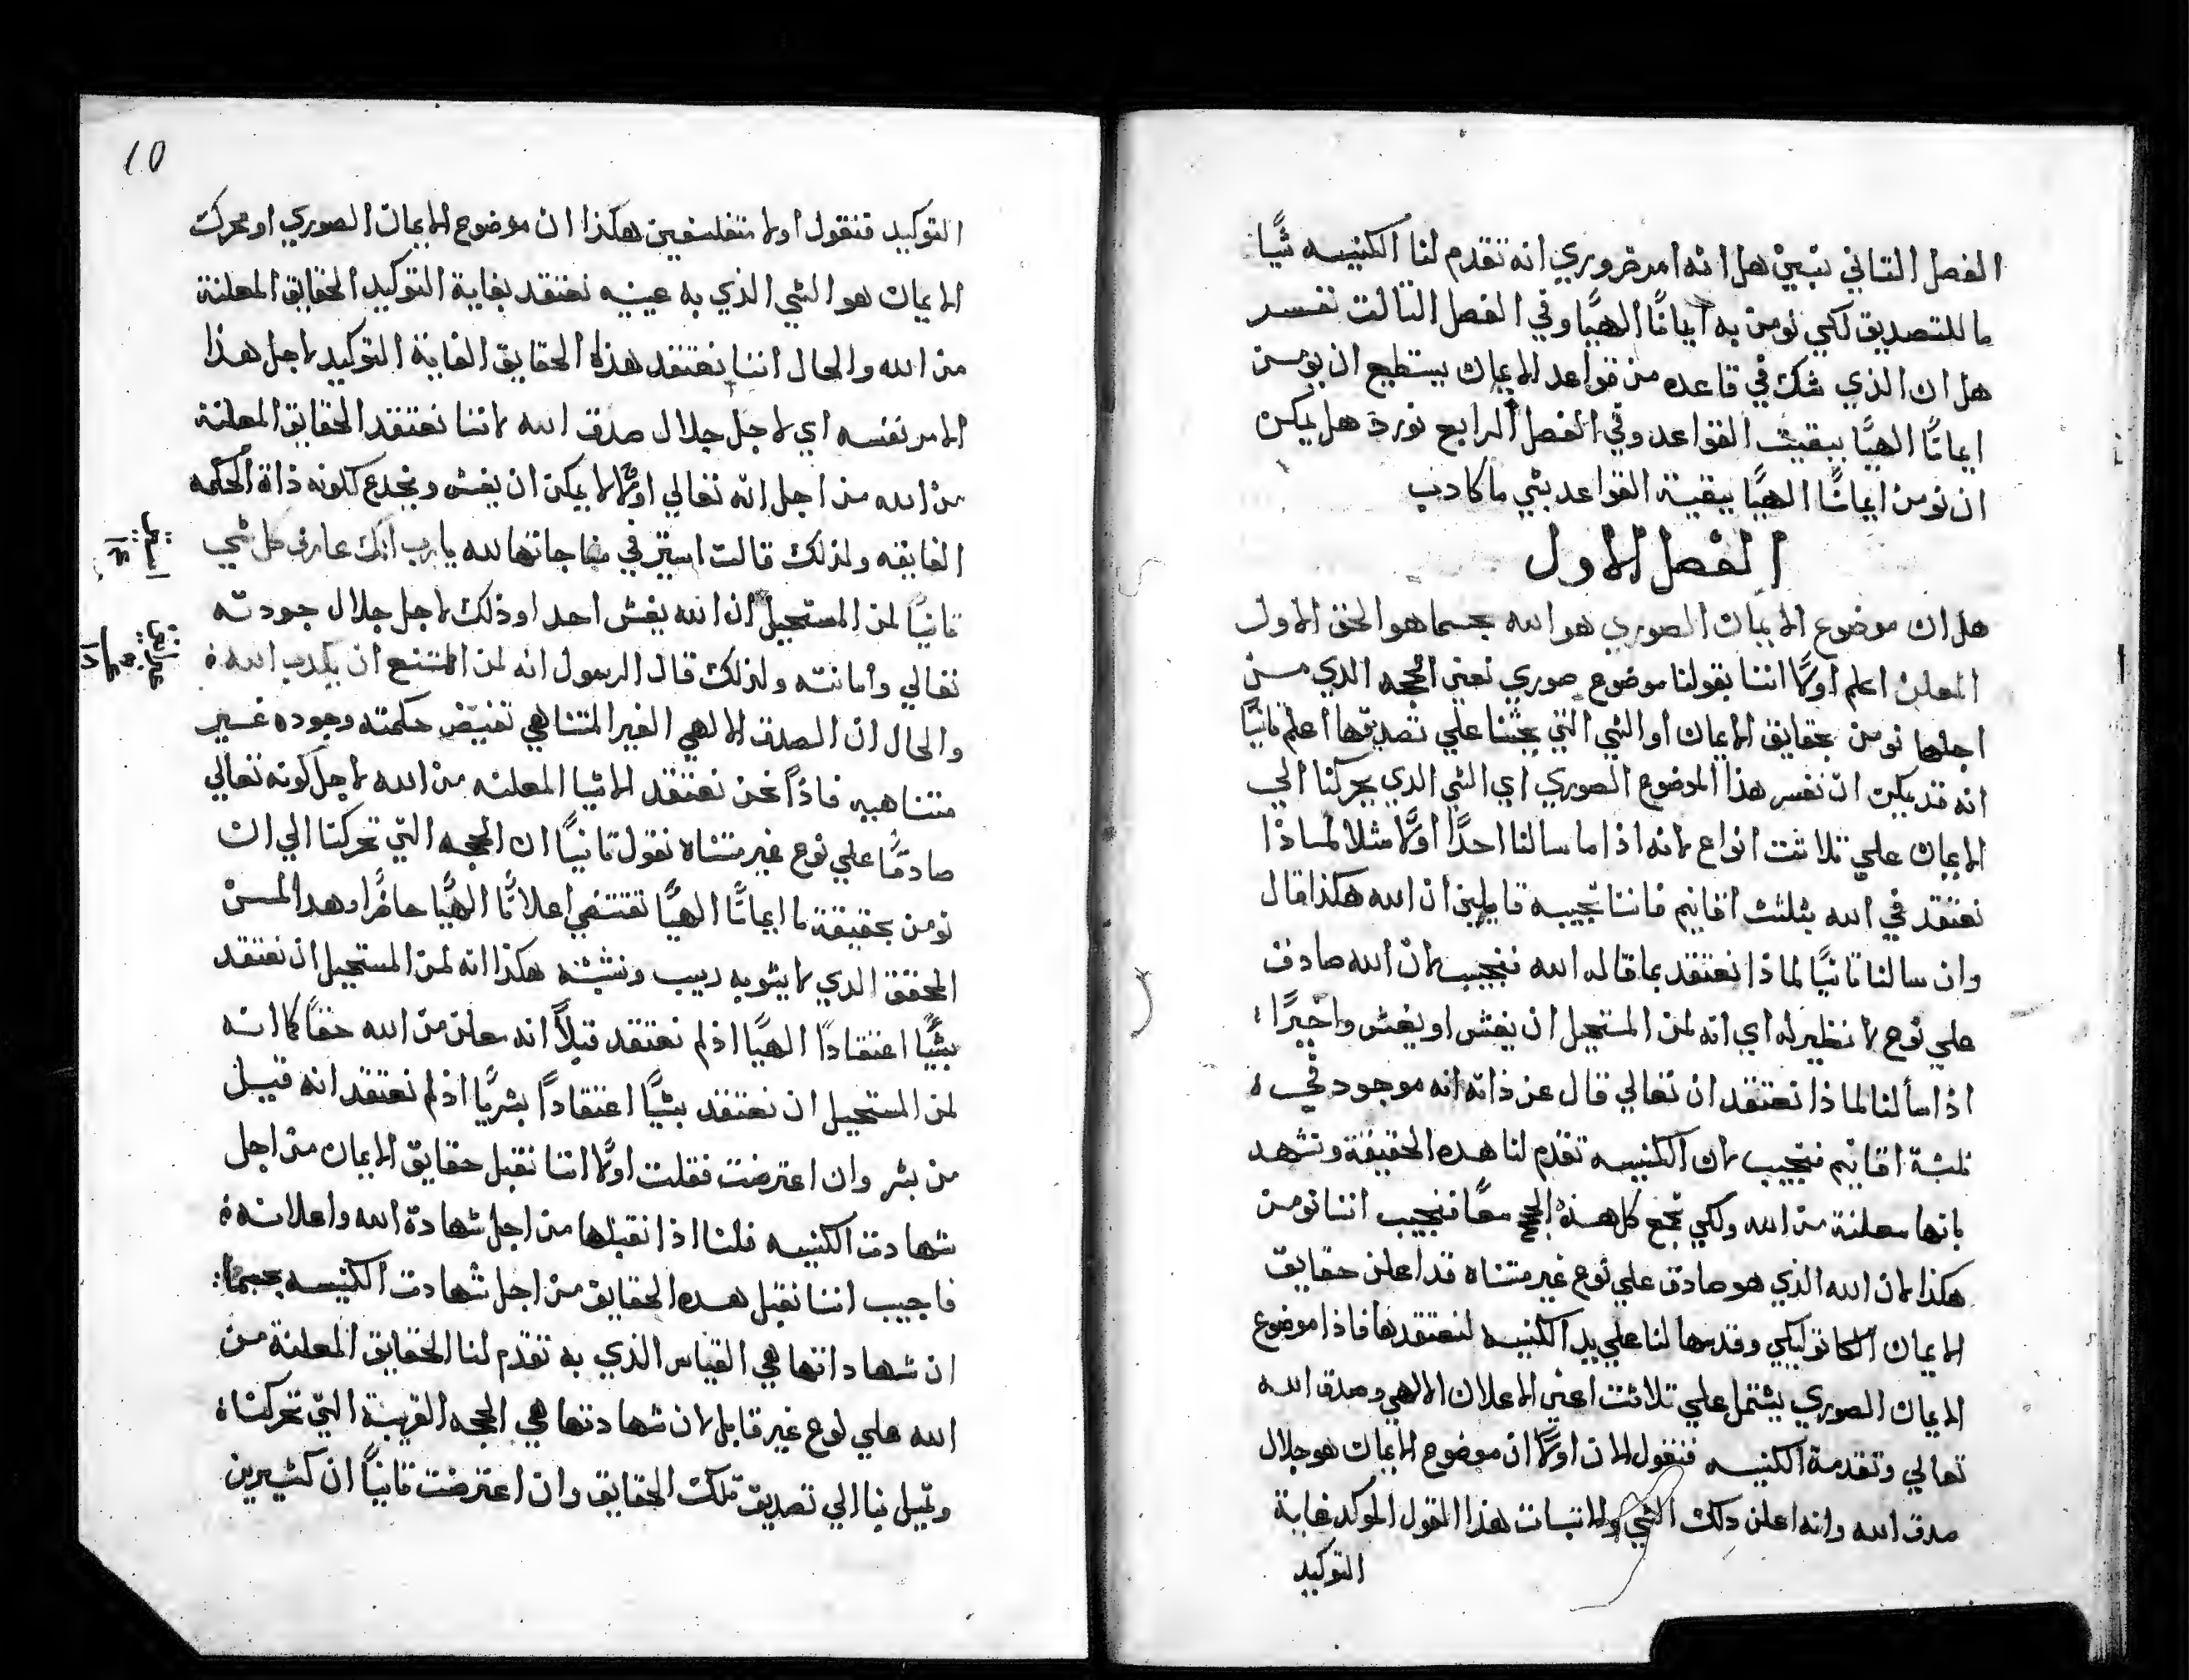 الفصل التاني نبين هل انه امر ضروري انه تقدم لنا الكنيسه شيًا
ما للتصديق لكي نومن به ايمانًا الهيًا وفي الفصل التالت نفسر
هل ان الذي شك في قاعده من قواعد الايمان يستطيع ان يومن
ايمانًا الهيًا ببقيت القواعد وفي الفصل الرابع نورد هل يمكن
ان نومن ايمانًا الهيًا ببقية القواعد بشي ما كادب
الفصل الاول
هل ان موضوع الايمان الصوري هو الله بحسما هو الحق الاول
المعلن اعلم اولًا اننا بقولنا موضوع صوري نعني الحجه الدي من
اجلها نومن بحقايق الايمان او الشي التي يحثنا علي تصديقها اعلم تانيًا
انه قد يمكن ان نفسر هذا الموضوع الصوري اي الشي الدي يحركنا الي
الايمان علي تلا تت انواع لانه اذا ما سالنا احدًا اولًا مثلا لماذا
نعتقد في الله بتلتت اقانيم فاننا نجيبه قايلين ان الله هكذا قال
وان سالنا تانيًا لماذا نعتقد بما قاله الله فنجيب لان الله صادق
علي نوع لا نظير له اي انه لمن المستحيل ان يغش او يغش واخيرًا
اذا سألنا لماذا نعتقد ان تعالي قال عن ذاته انه موجود في
تلتة اقانيم فنجيب لان الكنيسه تقدم لنا هده الحقيقة وتشهد
بانها معلنة من الله ولكي نجمع كل هذه الحجج معًا فنجيب اننا نومن
هكذا لان الله الذي هو صادق علي نوع غير متناه قد اعلن حقايق
الايمان الكاتوليكي وقدمها لنا علي يد الكنيسه لنعتقدها فاذا موضوع
الايمان الصوري يشتمل علي تلاتت اعني الاعلان الالهي وصدق الله
تعالي وتقدمة الكنيسه فنقول الان اولًا ان موضوع الايمان هو جلال
صدق الله وانه اعلن دلك الشي ولاتبات هذا القول الموكد غاية
التوكيد
10
التوكيد فنقول اولا متفلسفين هكذا ان موضوع الايمان الصوري او محرك
الايمان هو الشي الذي به عينه نعتقد بغاية التوكيد الحقايق المعلنة
من الله والحال اننا نعتقد هذه الحقايق الغاية التوكيد لاجل هذا
الامر نفسه اي لاجل جلال صدق الله لاننا نعتقد الحقايق المعلنة
من الله من اجل انه تعالي اولًا لا يمكن ان يغش ويخدع لكونه ذاة الحكمه
الفايقه ولذلك قالت استير في مناجاتها لله يا رب انك عارف كل شي
تانيًا لمن المستحيل ان الله يغش احدا وذلك لاجل جلال جودته
تعالي وأمانته ولذلك قال الرسول انه لمن الممتنع ان يكدب الله
والحال ان الصدق الالهي الغير المتناهي تقتضي حكمته وجوده غير
متناهيه فاذًا نحن نعتقد الاشيا المعلنه من الله لاجل كونه تعالي
صادقًا علي نوع غير متناه نقول تانيًا ان الحجه التي تحركنا الي ان
نومن بحقيقة ما ايمانًا الهيًا تقتضي اعلانًا الهيًا حاضرًا وهدا لمن
المحقق الدي لا يشوبه ريب ونثبته هكذا انه لمن المستحيل ان نعتقد
بشيًا اعتقادًا الهيًا اذ لم نعتقد قبلًا انه معلن من الله حقًا كما انه
لمن المستحيل ان نعتقد بشيًا اعتقادًا بشريًا اذ لم نعتقد انه قيل
من بشر وان اعترضت فقلت اولًا اننا نقبل حقايق الايمان من اجل
شهادت الكنيسه فلسنا اذا نقبلها من اجل شهادة الله واعلانه
فاجيب اننا نقبل هده الحقايق من اجل شهادت الكنيسه بحسما
ان شهاداتها هي القياس الذي به تقدم لنا الحقايق المعلنة من
الله علي نوع غير قابل لان شهادتها هي الحجه القريبة التي تحركنا
وتميل بنا الي تصديق تلك الحقايق وان اعترضت تانيًا ان كثيرين